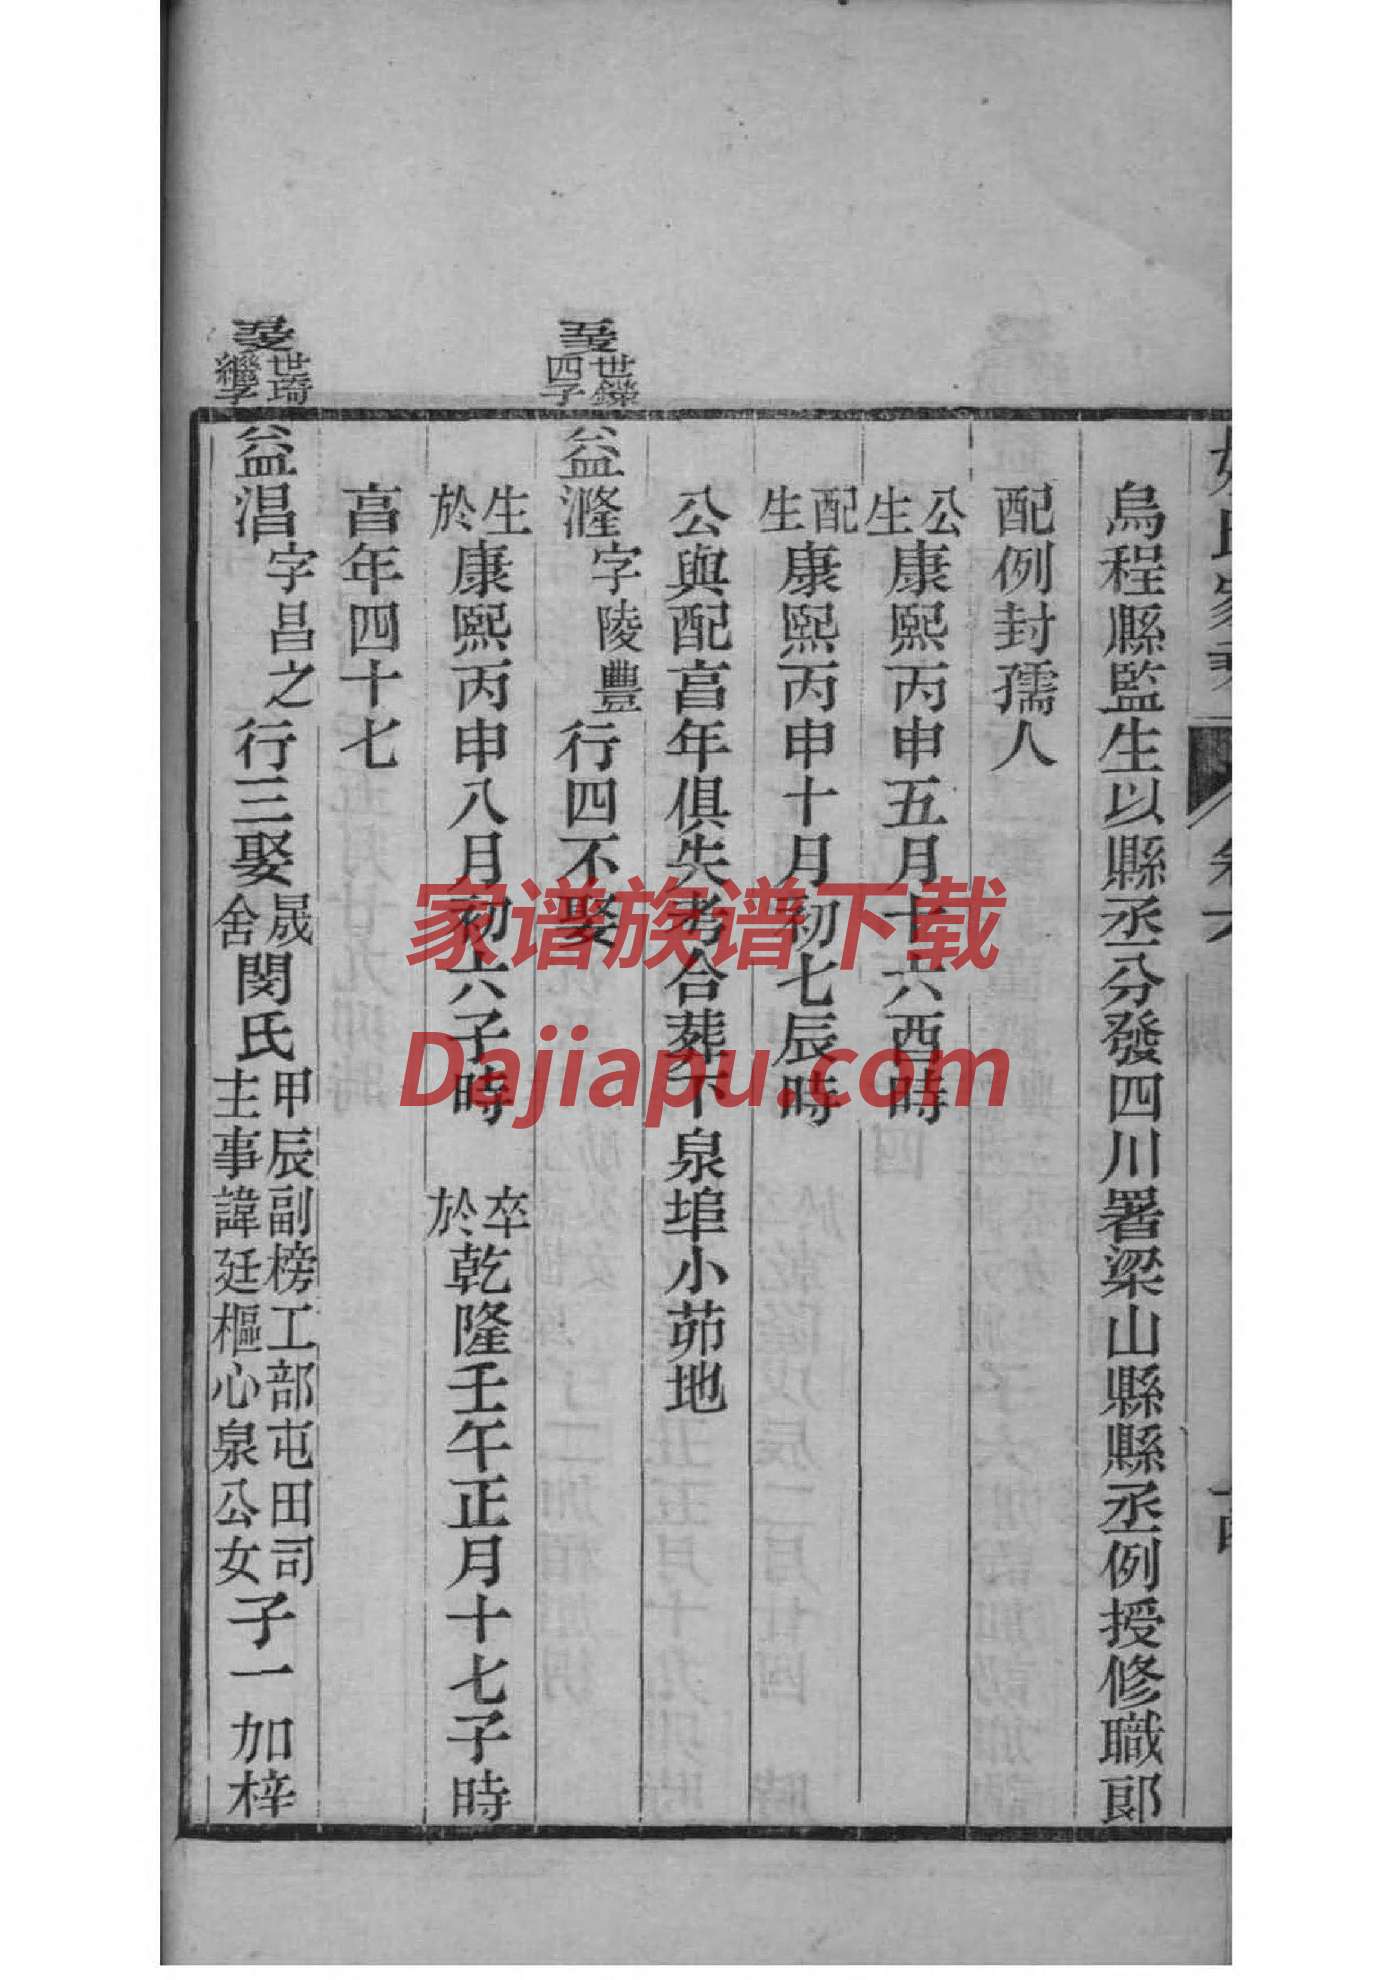 烏程縣監生以縣丞分發四川署梁山縣縣丞例授修職郎
配例封孺人
公生康熙丙申五月十六酉時
配生康熙丙申十月初七辰時
公與配亯年俱失考合葬下泉埠小茆地
世鑅四子
益漋字陵豐行四不娶
生於康熙丙申八月初六子時 卒於乾隆壬午正月十七子時
亯年四十七
世琦繼子
益淐字昌之行三娶晟舍閔氏甲辰副榜工部屯田司主事諱廷樞心泉公女子一加梓
家谱族谱下载
Dajiapu.com